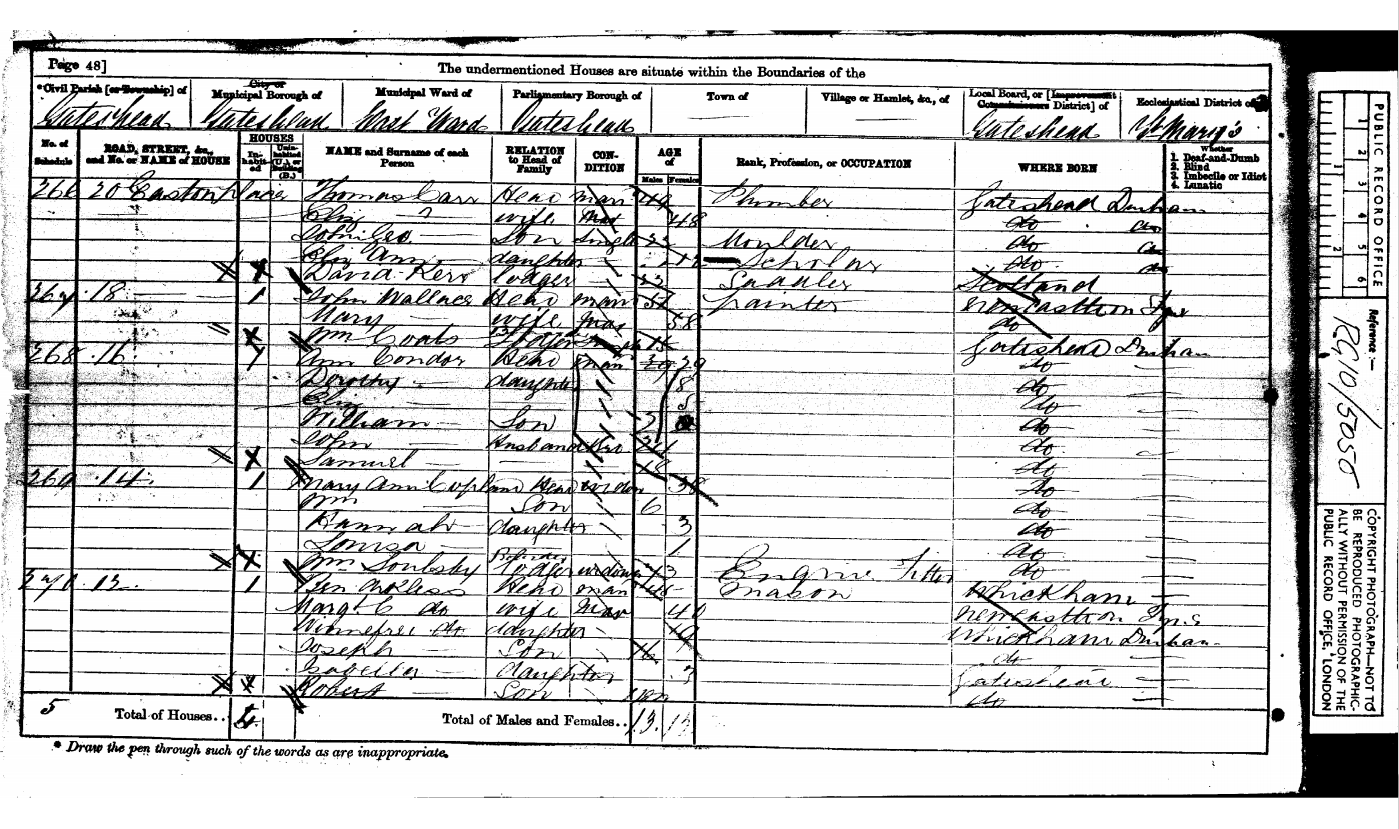 Page 48]
The undermentioned Houses are situate within the Boundaries of the
*Civil Parish [or Township] of
City or Municipal Borough of
Municipal Ward of
Parliamentary Borough of
Town of
Village or Hamlet, &c., of
Local Board, or [Improvement Commissioners District] of
Ecclesiastical District of
Gateshead Gateshead East Ward Gateshead Gateshead St Mary's
No. of Schedule
ROAD, STREET, &c., and No. or NAME of HOUSE
HOUSES
Inhabited
Uninhabited (U.), or Building (B.)
NAME and Surname of each Person
RELATION to Head of Family
CONDITION
AGE of
Males Females
Rank, Profession, or OCCUPATION
WHERE BORN
Whether
1. Deaf-and-Dumb
2. Blind
3. Imbecile or Idiot
4. Lunatic
266 20 Easton place 1 Thomas Carr Head mar 44 Plumber Gateshead Durham
Eliz wife mar 48 do do
John Geo. Son Single 22 Moulder do do
Eliz Ann daughter Scholar do do
David Kerr lodger 22 Saddler Scotland
267 18 1 John Wallace Head mar Painter Newcastle on Tyne
Mary wife mar 58 do
Wm Coats 15 Gateshead Durham
268 16 1 Ann Condor Head mar 29 do
Dorothy daughter 8 do
Eliz 5 do
William Son 3 do
John Husband do
Samuel 18 do
269 14 1 Mary Ann Copland Head widow 38 do
Wm Son 6 do
Hannah daughter 3 do
Louisa 1 do
Wm Soulsby Lodger widower Engine Fitter do
270 12 1 Head mar 45 mason Whickham
Marg. C do wife mar 40 Newcastle on Tyne
Winnefred do daughter Whickham Durham
Joseph Son do
Isabella daughter 3 Gateshead
Robert Son do
5 Total of Houses..
Total of Males and Females.. 13
* Draw the pen through such of the words as are inappropriate.
PUBLIC RECORD OFFICE
1 2 3 4 5 6
1 2
Reference :—
RG 10/5050
COPYRIGHT PHOTOGRAPH—NOT TO
BE REPRODUCED PHOTOGRAPHIC-
ALLY WITHOUT PERMISSION OF THE
PUBLIC RECORD OFFICE, LONDON